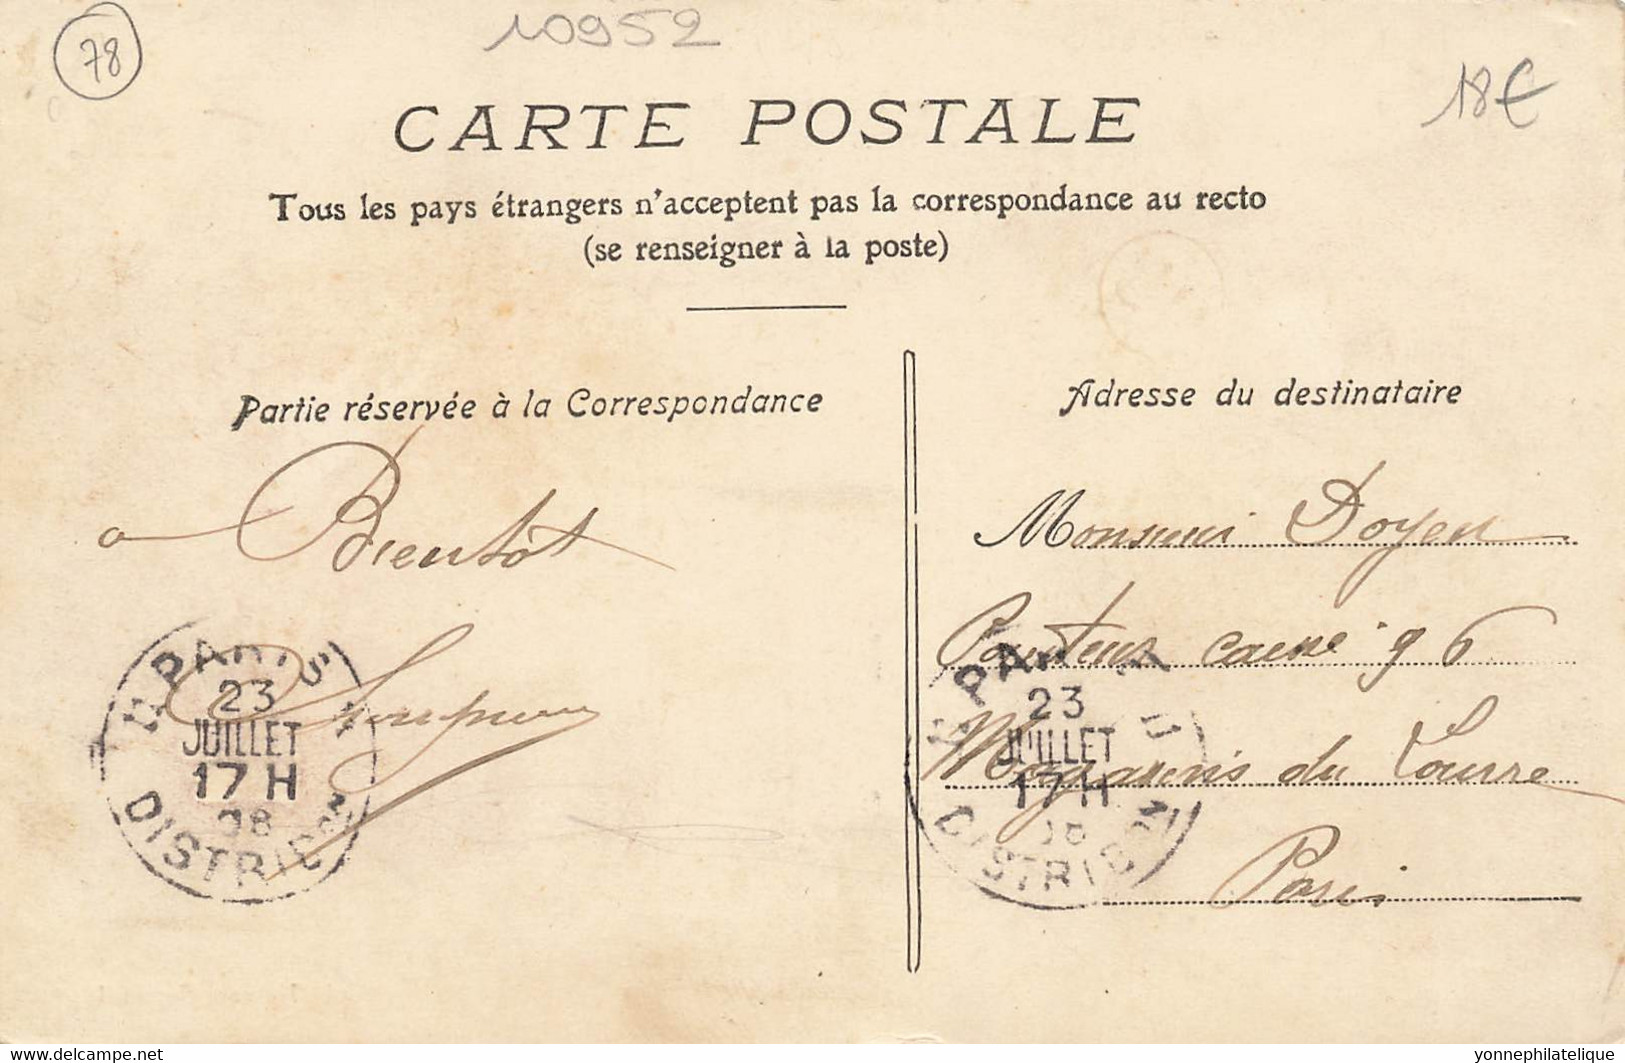 78
10952
18€
CARTE POSTALE
Tous les pays étrangers n'acceptent pas la correspondance au recto
(se renseigner à la poste)
Partie réservée à la Correspondance
Adresse du destinataire
a Bientôt
Monsieur Doyen
caisse 96
Magasins du Louvre
Paris
PARIS
23
JUILLET
17 H
08
DISTRIBON
PARIS
23
JUILLET
17 H
08
DISTRIBON
www.delcampe.net
yonnephilatelique